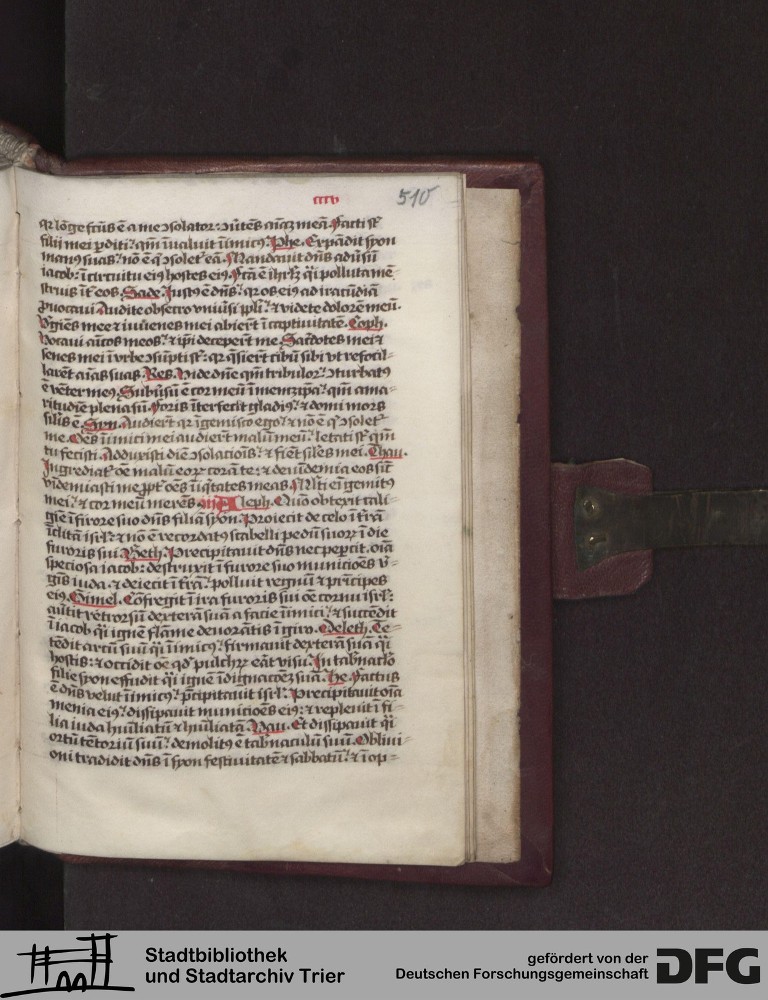 cccv 510
q͛ lōge fcūs ē a me ɔsolator: ɔu̇tēs aı̄aȝ meā. Facti sr̄
filij mei ꝑditi: qm̄ īualuit īimicꝰ. Phe. Expādit syon
manꝰ suas: nō ē q̇ ɔsolet͛ eā. Mandauit dn̄s adūsū
iacob: ī circuitu eiꝰ hostes eiꝰ. Fc̄a ē ihrl̄m q̇i polluta mē-
struis īt͛ eos. Sade. Iustꝰ ē dn̄s: q͛ os eiꝰ ad iracūdiā
ꝓuocaui. Audite obsecro vniūsi ppl̄i: ⁊ videte dolorē meū.
v̄gīēs mee ⁊ iuuenes mei abier̄t ī captiuitatē. Coph.
Vocaui aı̄cos meos: ⁊ ip̄i deceper̄t me. Sac̄dotes mei ⁊
senes mei ī vrbe ɔsūpti sr̄: q͛ q̄sier̄t cibū sibi vt refocil-
larēt aı̄as suas. Res. Vide dn̄e qm̄ tribulor: ɔturbatꝰ
ē vēter meꝰ. Subūsū ē cor meū ī memetip̄a: qm̄ ama-
ritudīe plena sū. Foris īterfecit gladiꝰ: ⁊ domi mors
sil̄is ē. Syn. Audier̄t q͛ īgemisco ego: ⁊ nō ē q̇ ɔsolet͛
me. Oēs īimici mei audier̄t malū meū: letati sr̄ qm̄
tu fecisti. Adduxisti diē ɔsolacionis: ⁊ fiēt sil̄es mei. Thau.
Ingrediat͛ oē malū eoꝝ corā te: ⁊ deuīdemia eos sic̄
videmiasti me ꝓpt͛ oēs īiq̇tates meas. Ml̄ti ei gemitꝰ
mei: ⁊ cor meū merēs. Aleph. Quō obtexit cali-
gīe ī furore suo dn̄s filiā syon. Proiecit de celo ī t͛rā
īclitā isrl̄: ⁊ nō ē recordatꝰ scabelli pedū suoꝝ ī die
furoris sui. Beth. Precipitauit dn̄s nec peꝑcit. oı̄a
speciosa iacob: destruxit ī furore suo municiōes v̄-
gīs iuda: ⁊ deiecit ī t͛rā: polluit regnū ⁊ prīcipes
eiꝰ. Gimel. Cōfregit ī ira furoris sui oē cornu isrl̄:
aūtit retrorsū dexterā suā a facie īimici: ⁊ succēdit
ī iacob q̇i ignē flāme deuorātis ī giro. Deleth. Te-
tēdit arcū suū q̇i īimicꝰ: firmauit dexterā suā q̇i
hostis: ⁊ occidit oē qd̄ pulchꝝ erāt visu. In tab̄nacl̄o
filie syon effudit q̇i ignē īdignacōeȝ suā. He. Factus
ē dn̄s velut īimicꝰ: p̄cipitauit isrl̄. Precipitauit oı̄a
menia eiꝰ: dissipauit municiōes eiꝰ: ⁊ repleuit ī fi-
lia iuda hūiliatū ⁊ hūiliatā. Vau. Et dissipauit q̇i
ortū tētoriū suū: demolitꝰ ē tab̄naculū suū. Obliui-
oni tradidit dn̄s ī syon festiuitatē ⁊ sabbatū: ⁊ ī op-
Stadtbibliothek
und Stadtarchiv Trier
gefördert von der
Deutschen Forschungsgemeinschaft DFG